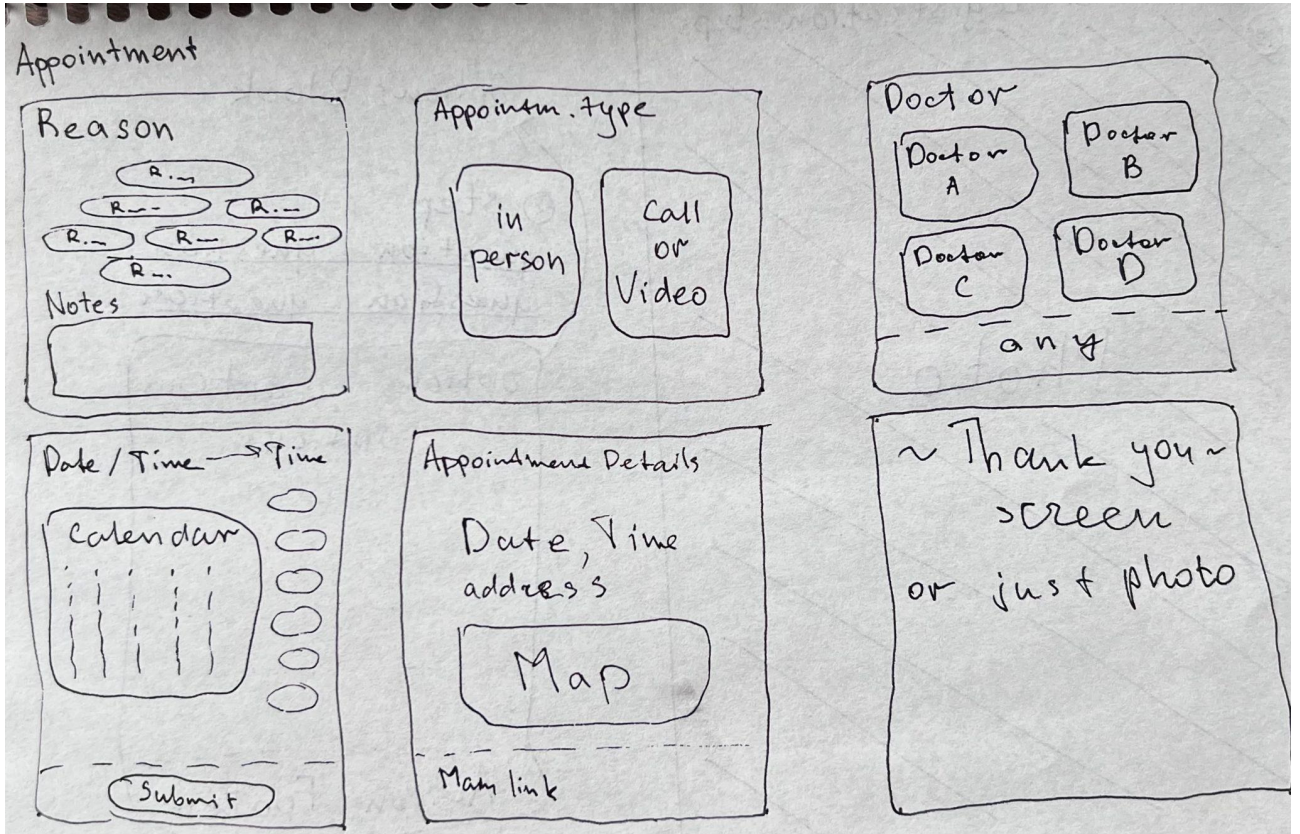 Appointment
Reason
R...
R...
R...
R...
R...
R...
R...
Notes
Appointm. type
in
person
Call
or
Video
Doctor
Doctor
A
Doctor
B
Doctor
C
Doctor
D
any
Date / Time → Time
Calendar
Submit
Appointmend Details
Date, Time
address
Map
link
~ Thank you ~
screen
or just photo